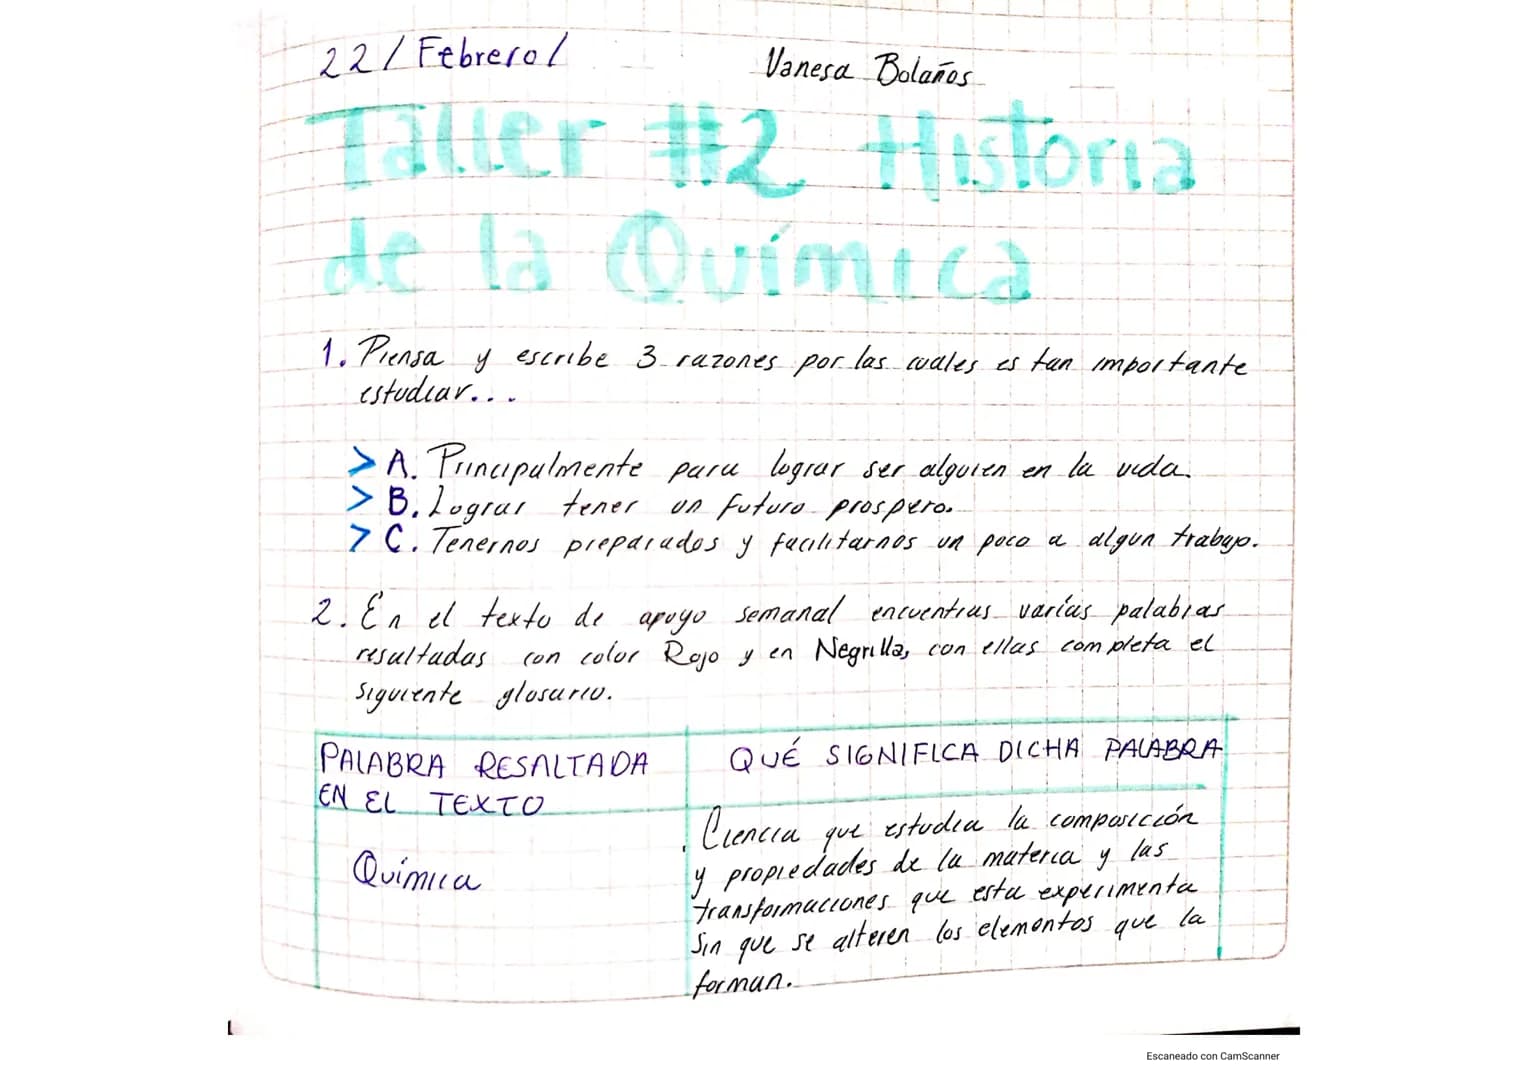 22/Febrero/
Vanesa Bolaños
Taller #2 Historia
de la Química
1. Piensa y escribe 3 razones por las cuales es tan importante
estudiar...
> A. Principalmente para lograr ser alguien en la vida.
> B. Lograr tener un futuro prospero.
> C. Tenernos preparados y facilitarnos un poco a algun trabajo.
2. En el texto de apoyo semanal encuentras varías palabras
resaltadas con color Rojo y en Negrilla, con ellas completa el
siguiente glosario.
PALABRA RESALTADA
EN EL TEXTO
QUÉ SIGNIFICA DICHA PALABRA
Química
Ciencia que estudia la composición
y propiedades de la materia y las
transformaciones que esta experimenta
sin que se alteren los elementos que la
forman.
Escaneado con CamScanner